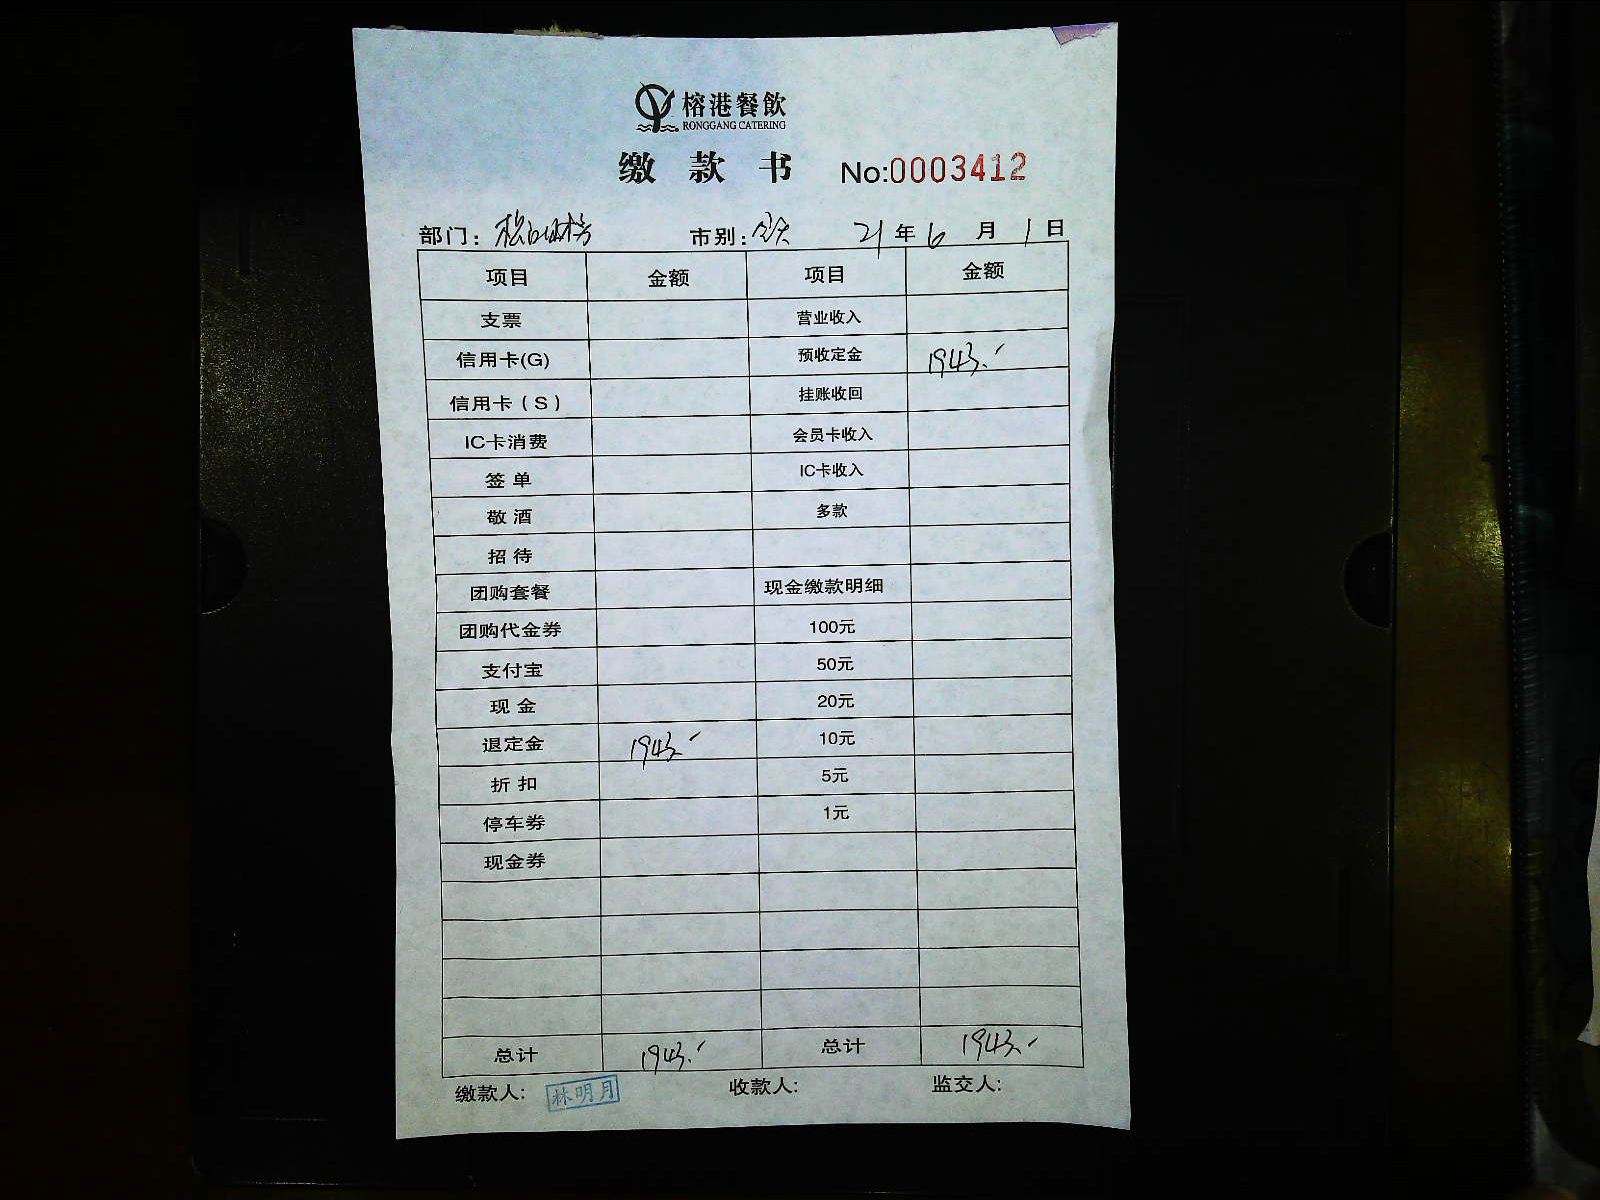 榕港餐飲
RONGGANG CATERING
缴款书 No:0003412
部门: 市别:全天 21年6月1日
项目 金额 项目 金额
支票 营业收入
信用卡(G) 预收定金 1943.-
信用卡(S) 挂账收回
IC卡消费 会员卡收入
签单 IC卡收入
敬酒 多款
招待
团购套餐 现金缴款明细
团购代金券 100元
支付宝 50元
现金 20元
退定金 1943.- 10元
折扣 5元
停车券 1元
现金券
总计 1943.- 总计 1943.-
缴款人: 林明月 收款人: 监交人: